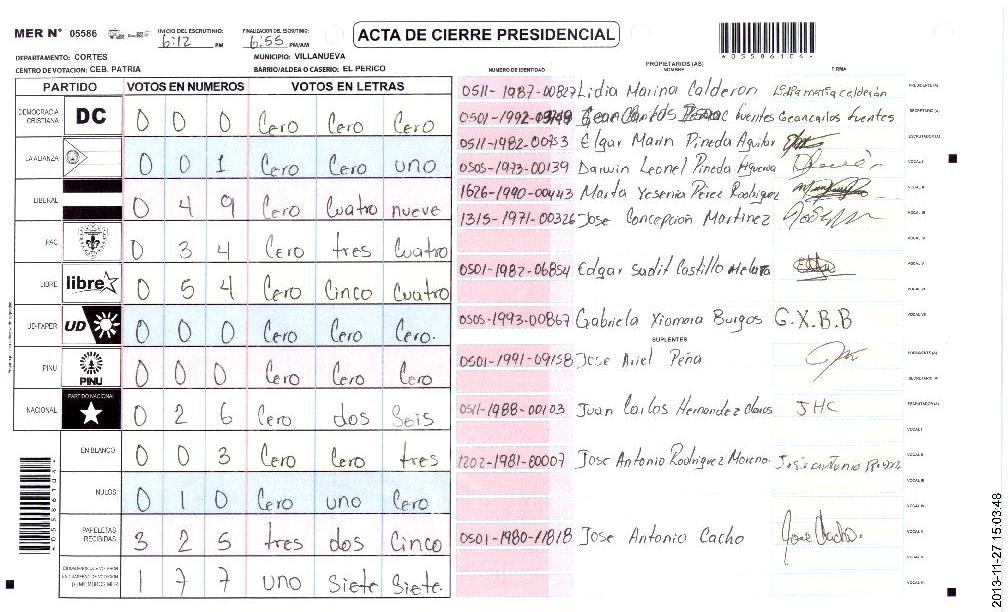 MER N° 05586
INICIO DEL ESCRUTINIO: 6:12 PM
FINALIZACION DEL ESCRUTINIO: 6:55 PM/AM
ACTA DE CIERRE PRESIDENCIAL
A05586104
DEPARTAMENTO: CORTES
MUNICIPIO: VILLANUEVA
CENTRO DE VOTACION: CEB. PATRIA
BARRIO/ALDEA O CASERIO: EL PERICO
PARTIDO VOTOS EN NUMEROS VOTOS EN LETRAS
DEMOCRACIA CRISTIANA DC 0 0 0 Cero Cero Cero
LA ALIANZA 0 0 1 Cero Cero uno
LIBERAL 0 4 9 Cero Cuatro nueve
PAC 0 3 4 Cero tres Cuatro
LIBRE libre 0 5 4 Cero Cinco Cuatro
UD-FAPER UD 0 0 0 Cero Cero Cero.
PINU PINU 0 0 0 Cero Cero Cero
NACIONAL PARTIDO NACIONAL 0 2 6 Cero dos Seis
EN BLANCO 0 0 3 Cero Cero tres
NULOS 0 1 0 Cero uno Cero
PAPELETAS RECIBIDAS 3 2 5 tres dos Cinco
1 7 7 uno Siete Siete.
A05586104
NUMERO DE IDENTIDAD PROPIETARIOS (AS) NOMBRE FIRMA
0511-1987-00827 Lidia Marina Calderon Lidia maria calderón PRESIDENTE (A)
0501-1992- fuentes Geancarlos fuentes SECRETARIO (A)
0511-1982-00753 Elgar Marin Pineda Aguilar ESCRUTADOR (A)
0505-1973-00139 Darwin Leonel Pineda Figueroa VOCAL I
1626-1990-00443 Marta Yesenia Pérez Rodriguez VOCAL II
1315-1971-00326 Jose Concepcion Martinez VOCAL III
VOCAL IV
0501-1982-06854 Edgar Sadit Castillo VOCAL V
VOCAL VI
0505-1993-00867 Gabriela Xiomara Burgos G.X.B.B VOCAL VII
SUPLENTES
0501-1991-09158 Jose Ariel Peña PRESIDENTE (A)
SECRETARIO (A)
0511-1988-00103 Juan Carlos Hernandez Claros JHC ESCRUTADOR (A)
VOCAL I
1202-1981-00007 Jose Antonio Rodriguez Moreno. VOCAL II
VOCAL III
VOCAL IV
0501-1980-11818 Jose Antonio Cacho Jose Cacho. VOCAL V
VOCAL VI
VOCAL VII
2013-11-27 15:03:48